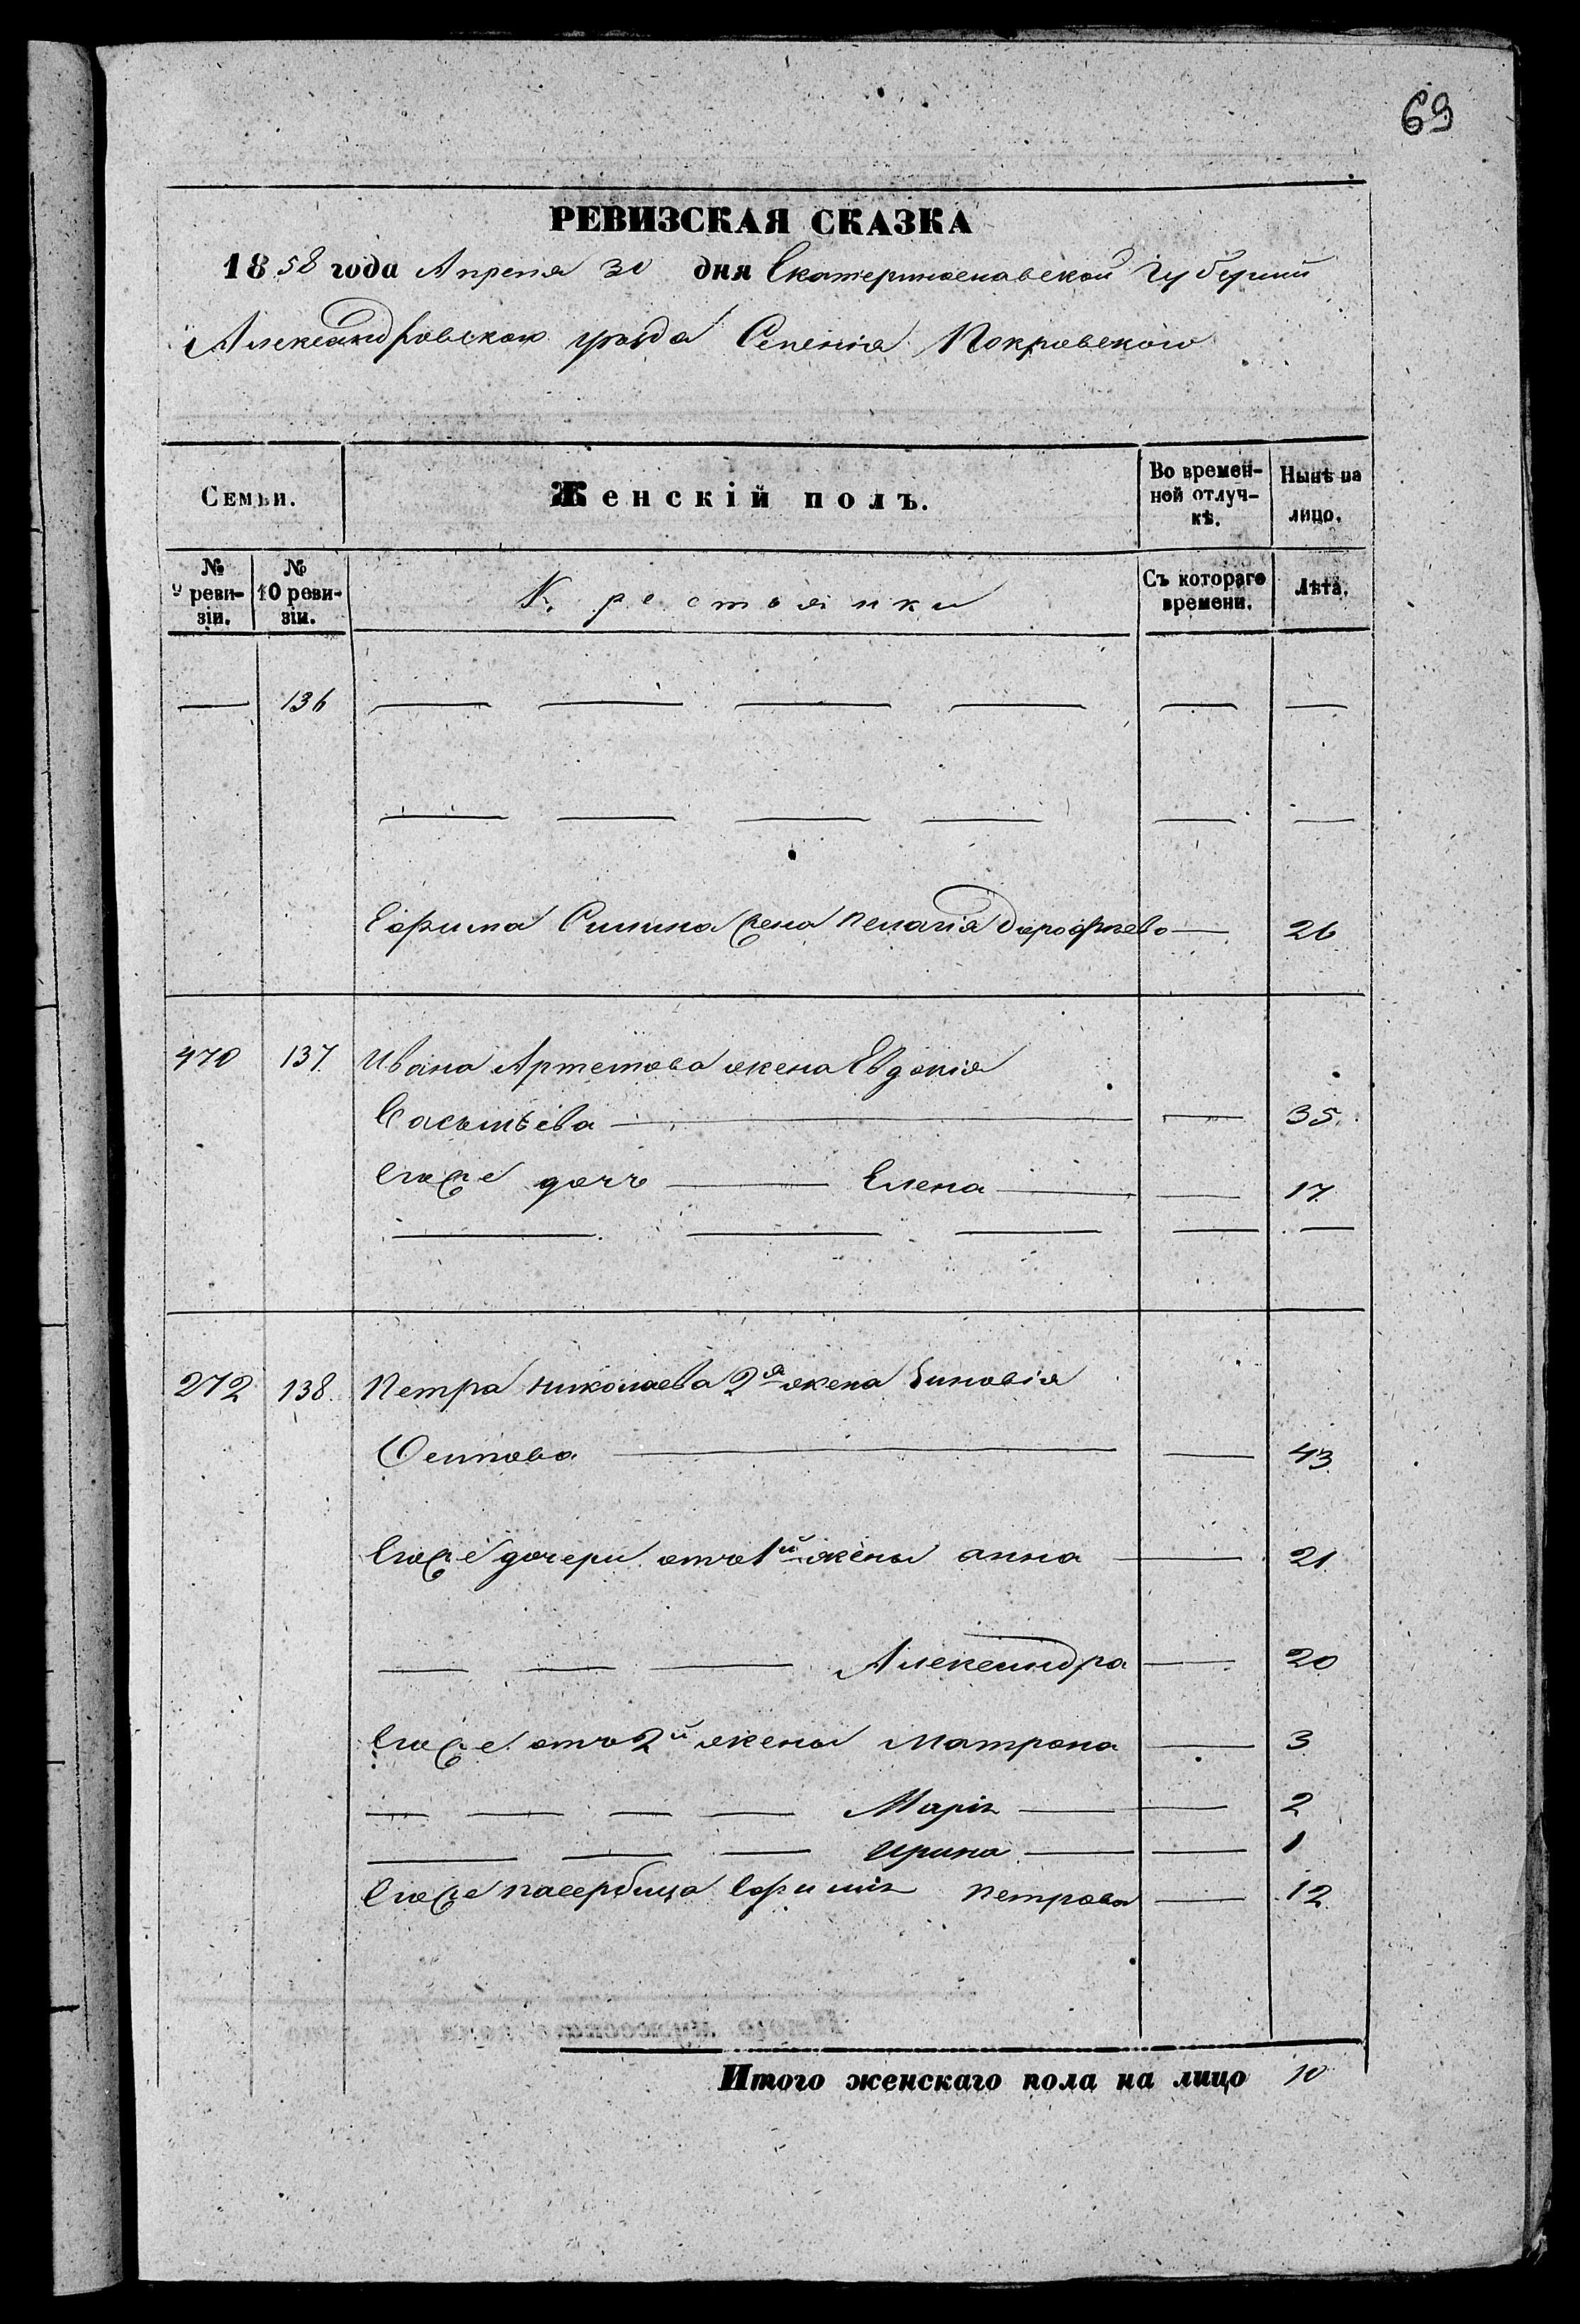 69
РЕВИЗСКАЯ СКАЗКА
1858 года Апреля 30 дня Екатеринославской Губернии
Александровскаго уѣзда Селенія Покровского
Семьи. Женскій полъ. Во времен-ной отлуч-кѣ. Нынѣ на лицо.
№ 9 реви-зіи. № 10 реви-зіи. Крестьянки Съ котораго времени. Лѣта.
— 136 — — — — — —
— — — — — —
Ефима Силина жена Пелагія Дорофѣева — 26
470 137 Ивана Артемова жена Евдокія
Васильева — — 35.
Егоже дочь — Елена — — 17
— — — — —
272 138. Петра Николаева 2я жена Зиновія
Осипова — — 43
Егоже дочери отъ 1й жены Анна — 21.
— — — Александра — 20
Егоже отъ 2й жены Матрона — 3
— — — — Марія — — 2
— — — Ирина — — 1
Егоже пасербица Ефимія Петрова — 12
Итого женскаго пола на лицо 10